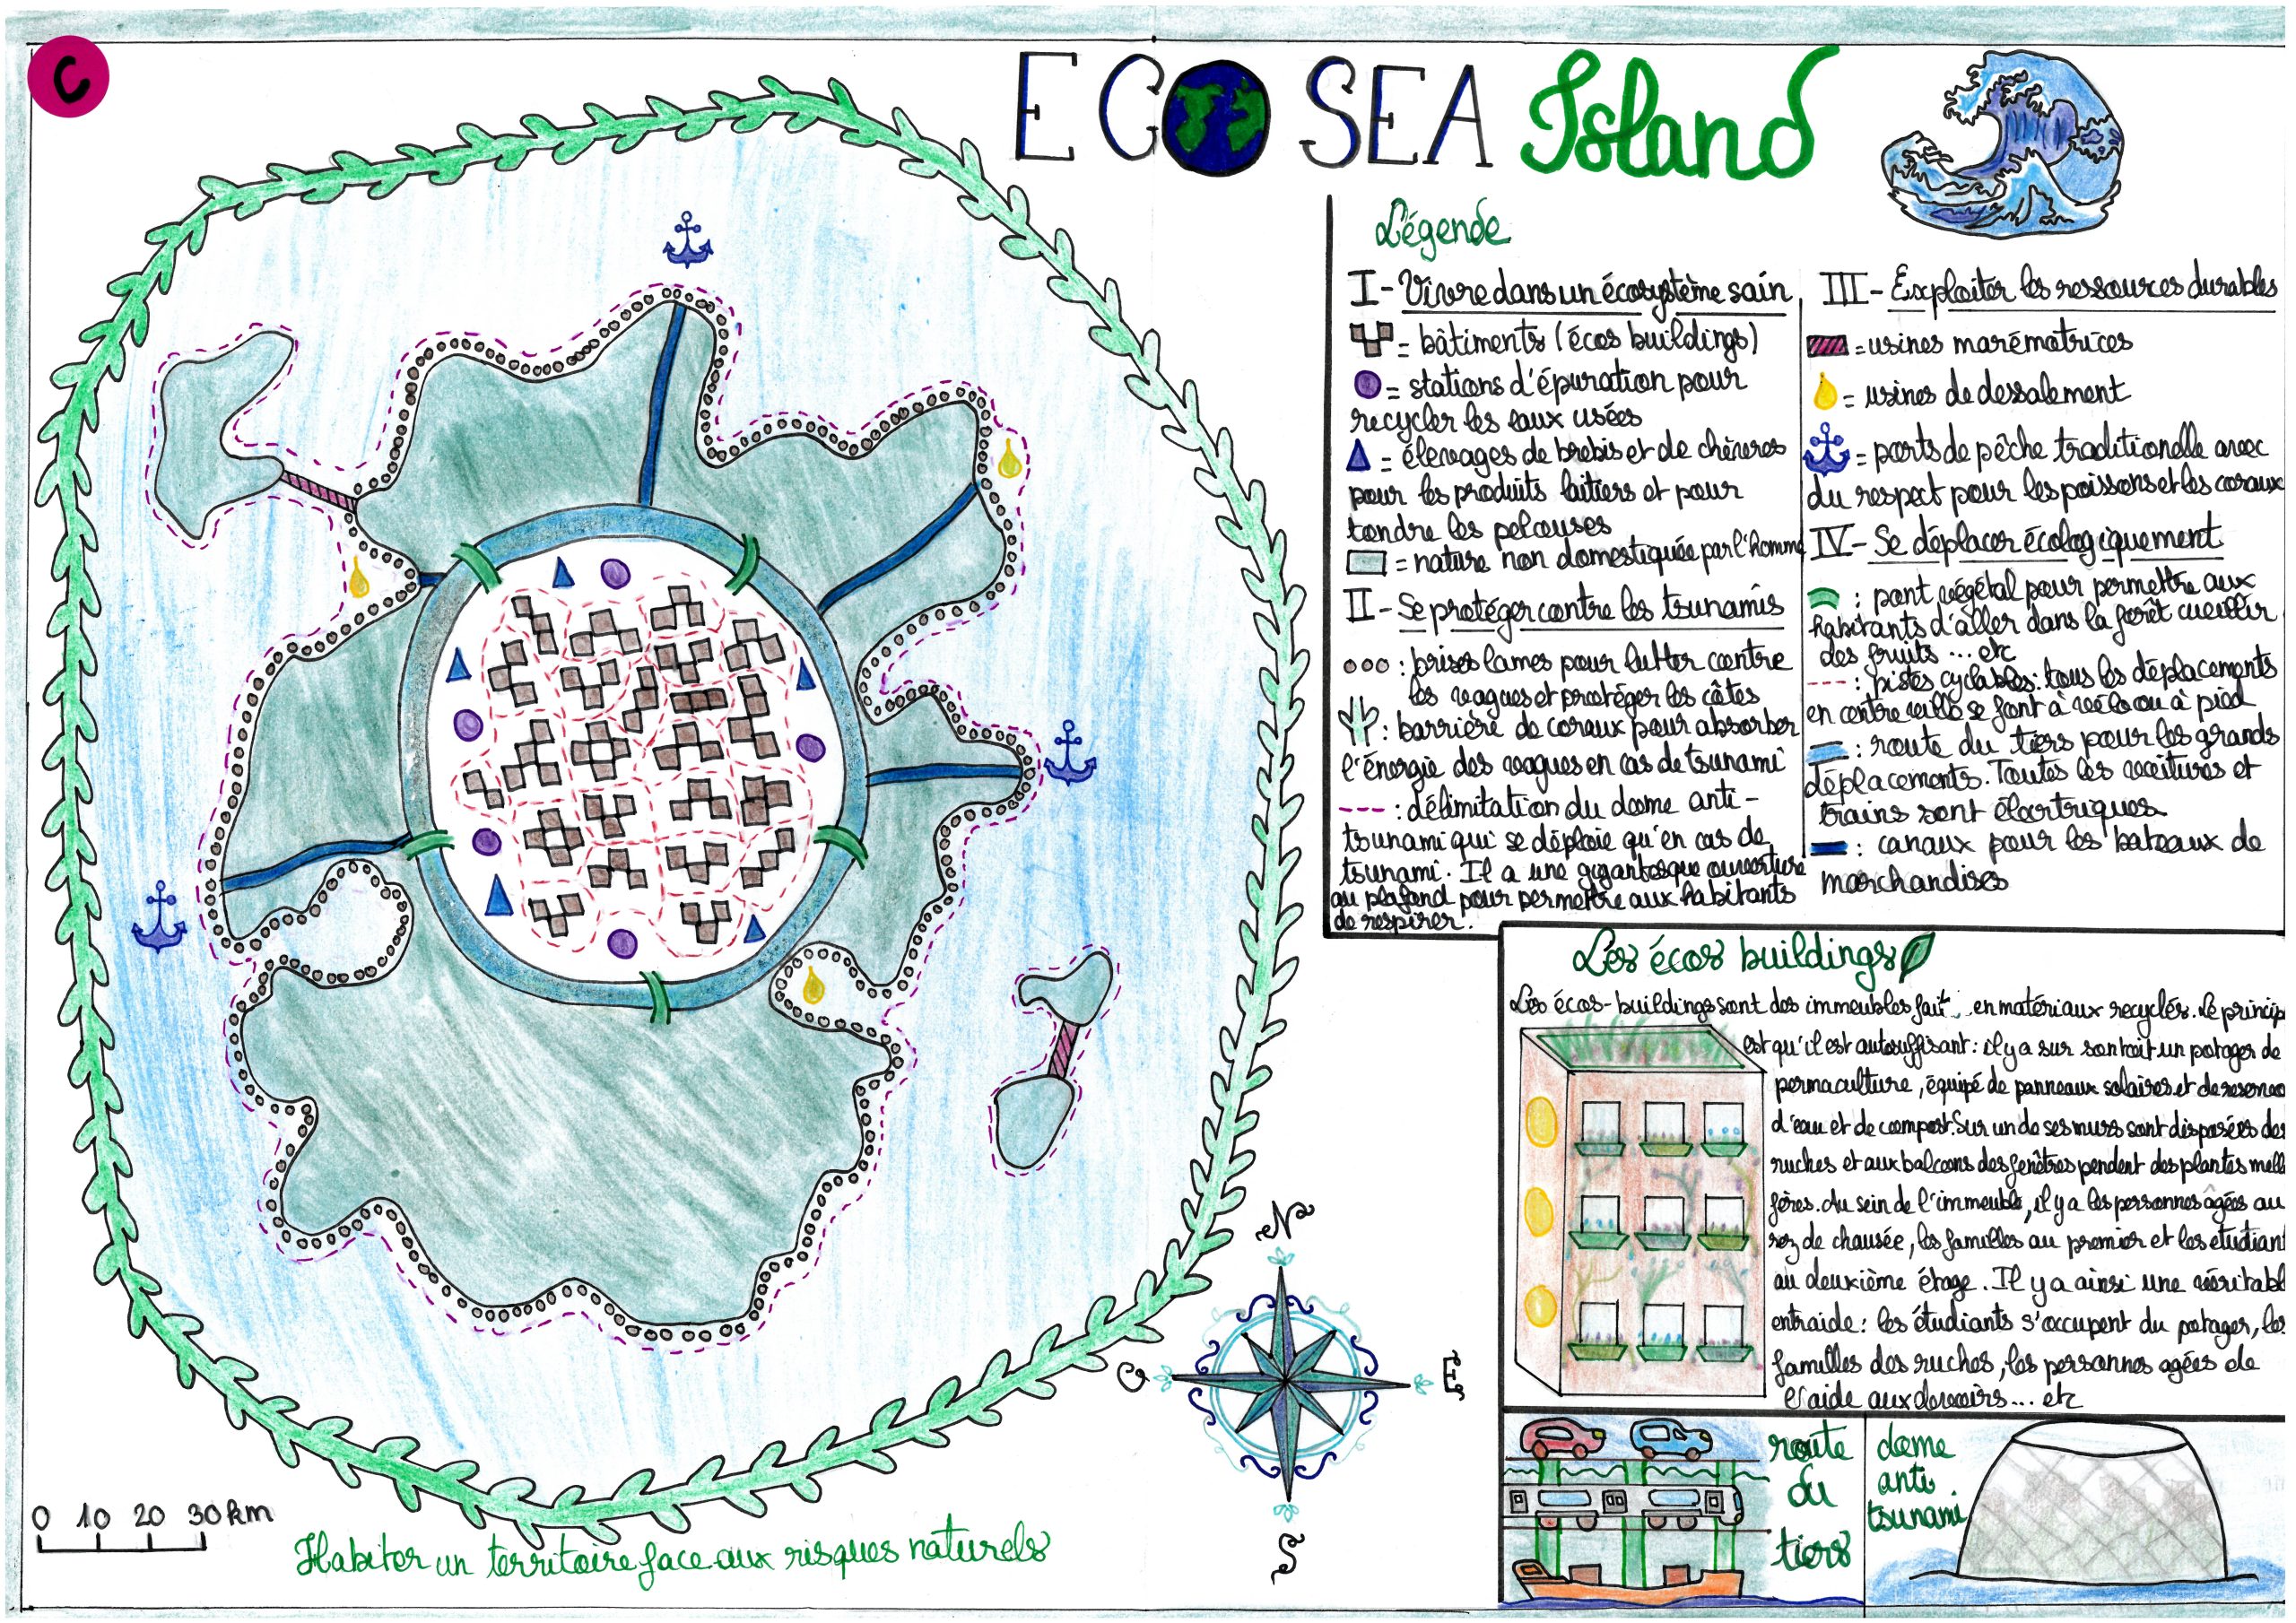 C
ECO SEA Island
Légende
I - Vivre dans un écosystème sain
= bâtiments (écos buildings)
= stations d'épuration pour
recycler les eaux usées
= élevages de brebis et de chèvres
pour les produits laitiers et pour
tondre les pelouses
= nature non domestiquée par l'homme
II - Se protéger contre les tsunamis
: brises lames pour lutter contre
les vagues et protéger les côtes
: barrière de coraux pour absorber
l'énergie des vagues en cas de tsunami
: délimitation du dome anti-
tsunami qui se déploie qu'en cas de
tsunami. Il a une gigantesque ouverture
au plafond pour permettre aux habitants
de respirer.
III - Exploiter les ressources durables
= usines marémotrices
= usines de dessalement
= ports de pêche traditionelle avec
du respect pour les poissons et les coraux
IV - Se déplacer écologiquement
: pont végétal pour permettre aux
habitants d'aller dans la forêt cueillir
des fruits ... etc
: pistes cyclables: tous les déplacements
en centre ville se font à vélo ou à pied
: route du tiers pour les grands
déplacements. Toutes les voitures et
trains sont électriques
: canaux pour les bateaux de
marchandises
Les écos buildings
Les écos-buildings sont des immeubles fait en matériaux recyclés. Le princip
est qu'il est autosuffisant: il y a sur son toit un potager de
permaculture, équipé de panneaux solaires et de reserves
d'eau et de compost. Sur un de ses murs sont disposées des
ruches et aux balcons des fenêtres pendent des plantes melli
fères. Au sein de l'immeuble, il y a les personnes âgées au
rez de chausée, les familles au premier et les etudiant
au deuxième étage. Il y a ainsi une véritabl
entraide: les étudiants s'occupent du potager, les
familles des ruches, les personnes agées de
l'aide aux devoirs... etc
route
du
tiers
dome
anti
tsunami
N
O
E
S
0 10 20 30 km
Habiter un territoire face aux risques naturels